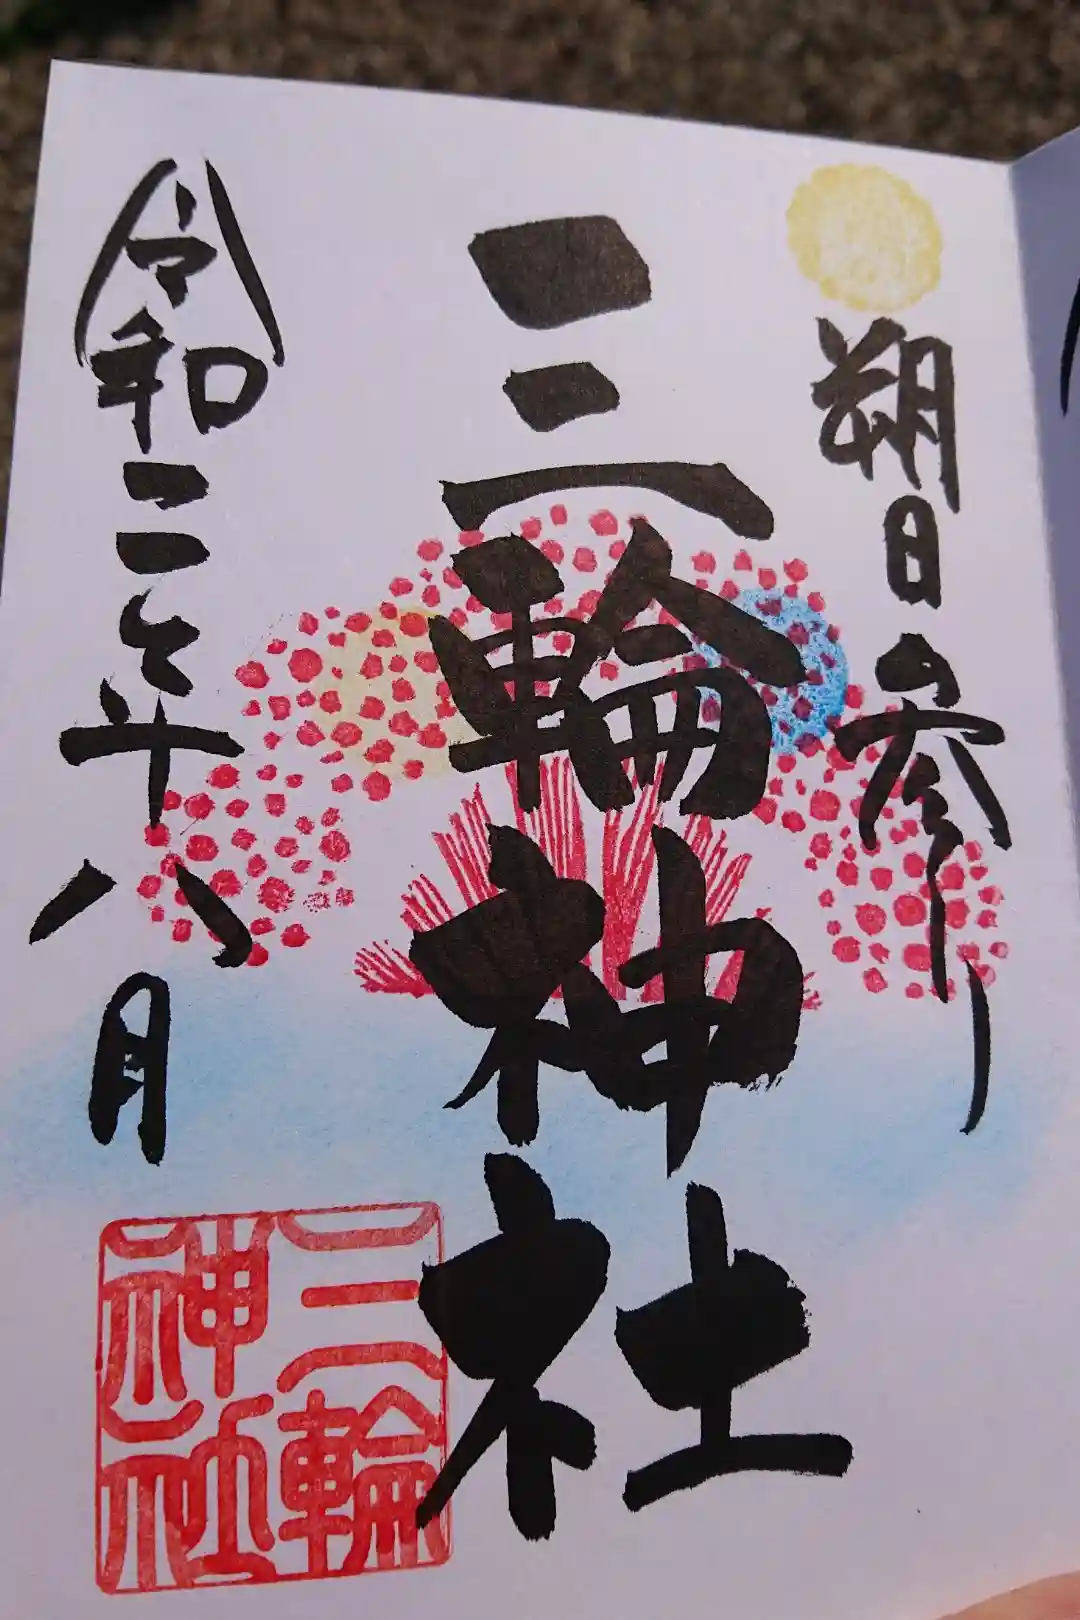 朔日参り
三輪神社
令和二年八月
三輪
神社